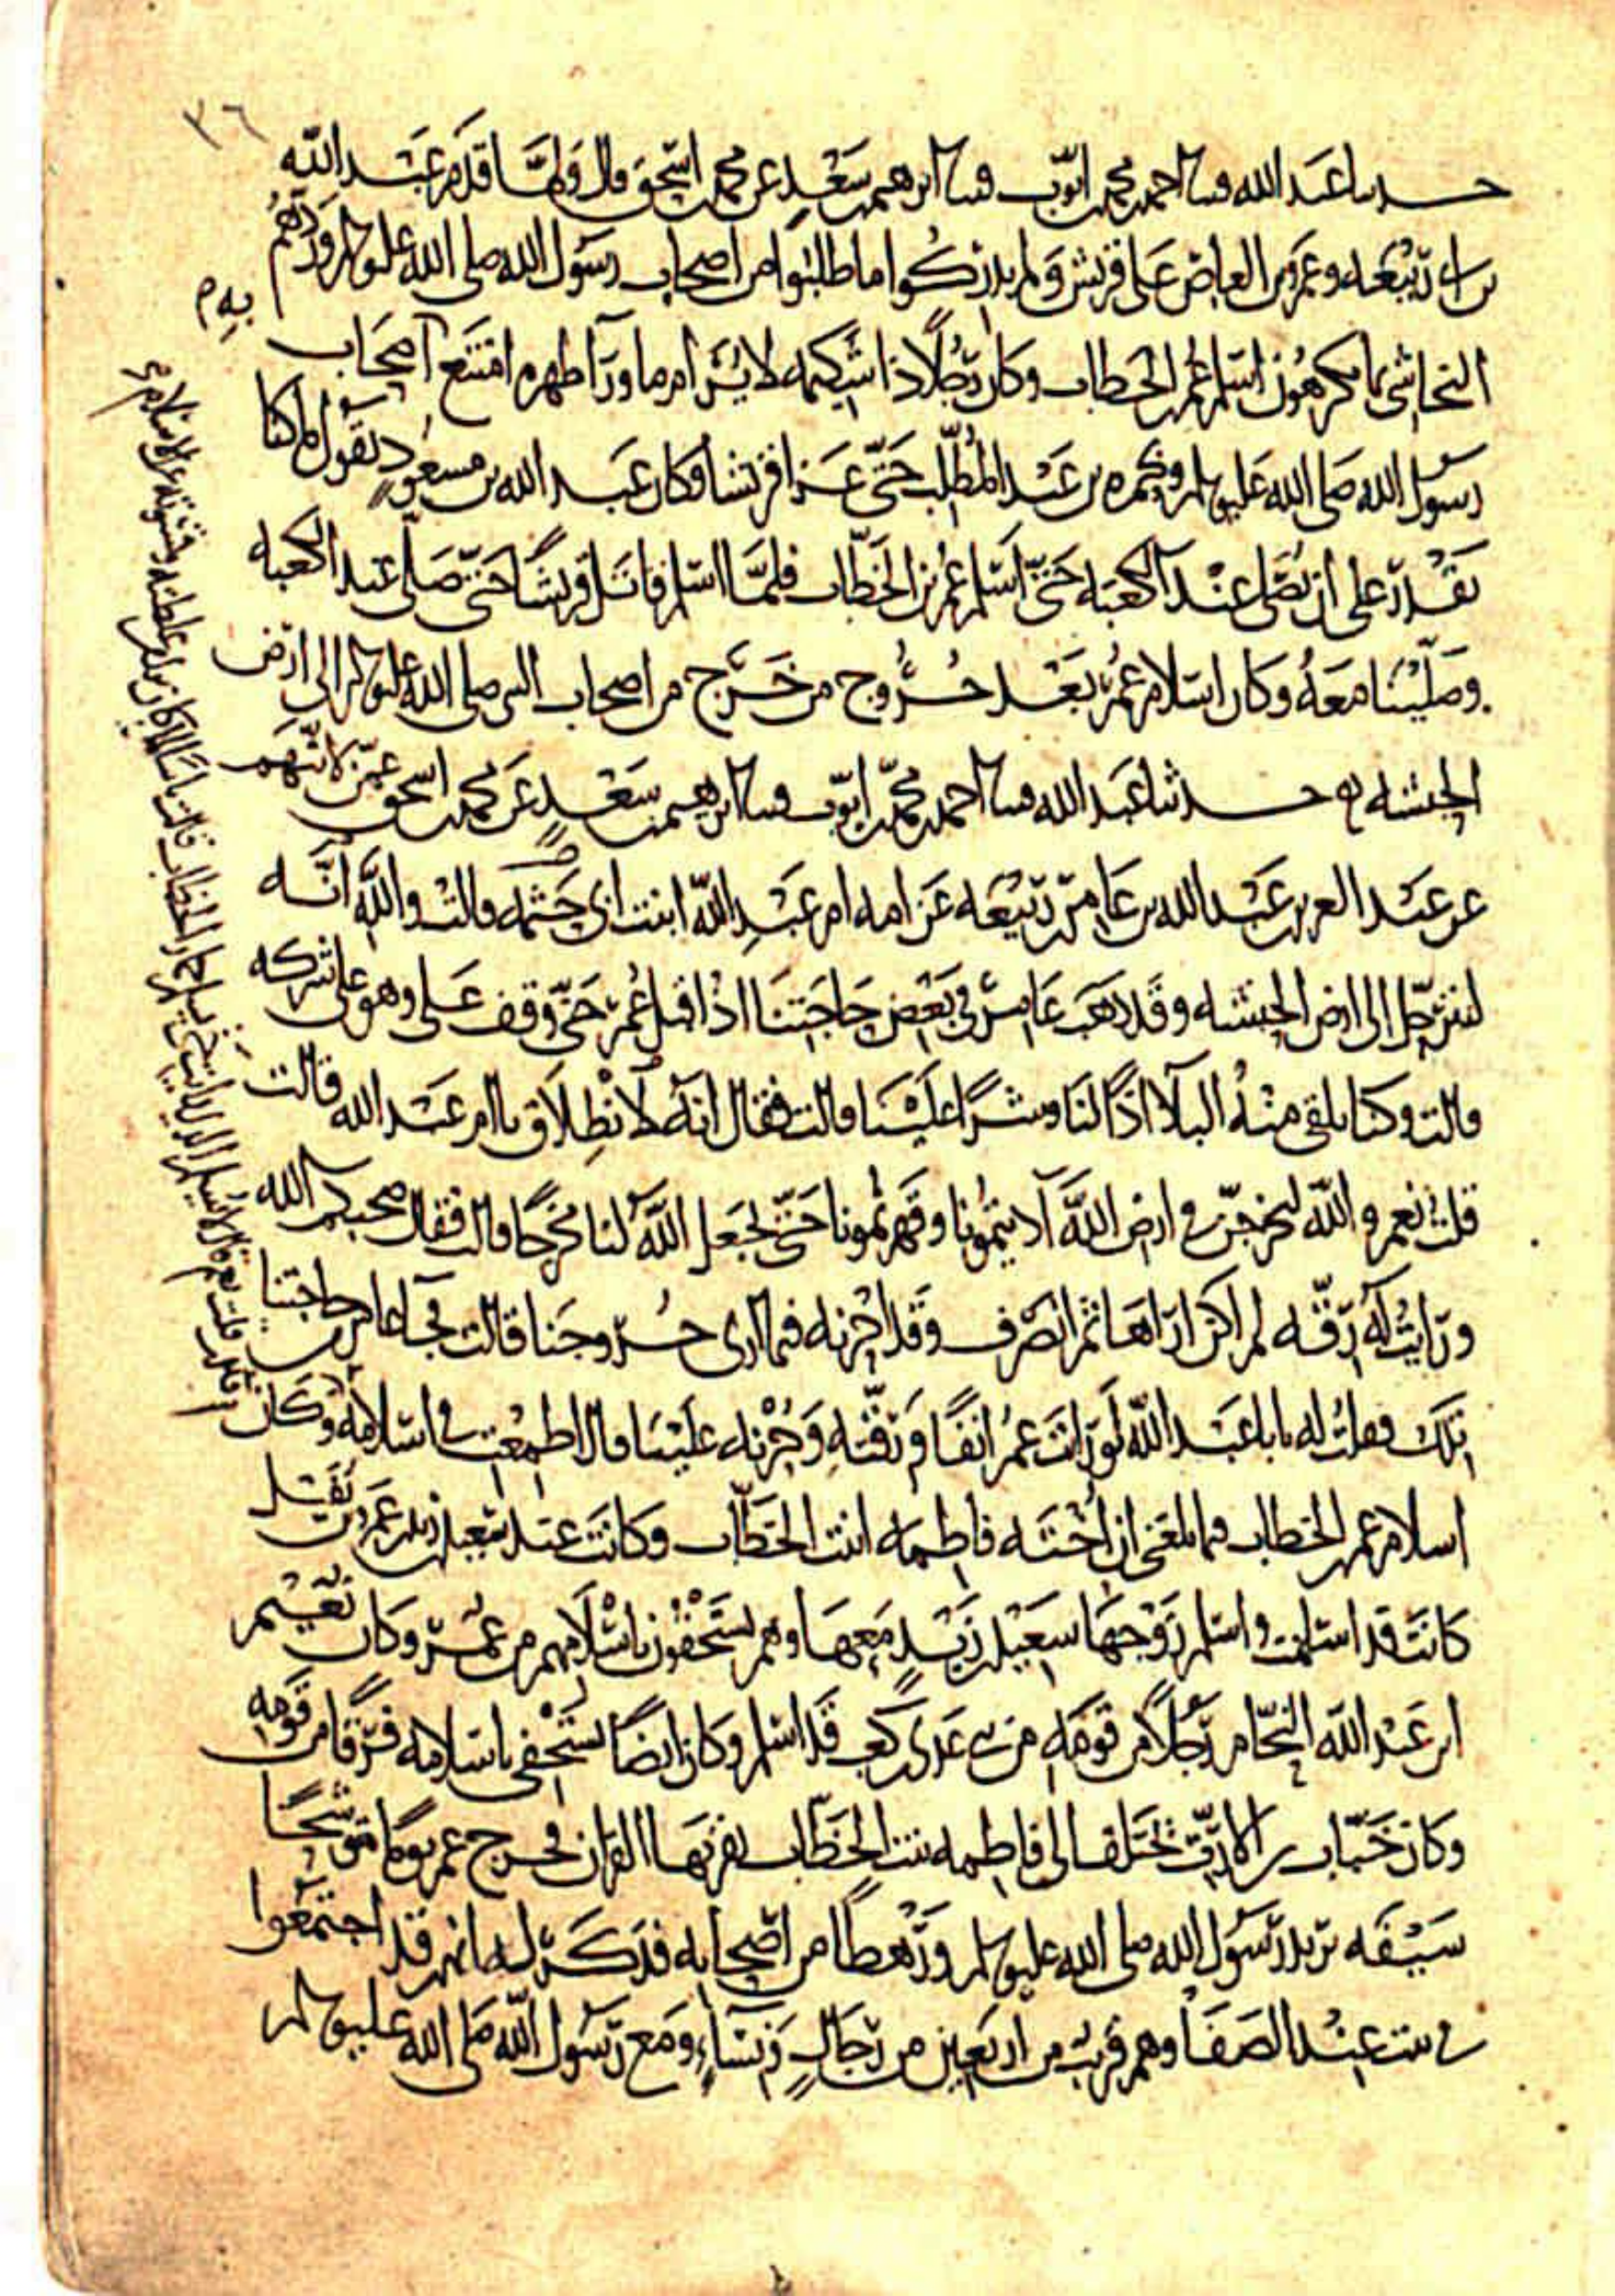 ٣٦
حدثنا عبد الله قثنا احمد بن محمد بن ايوب قثنا ابرهيم بن سعد عن محمد بن اسحق قال ولما قدم عبد الله
بن ابي ربيعه وعمرو بن العاص على قريش ولم يدركوا ما طلبوا من اصحاب رسول الله صلى الله عليه وسلم وردهم
النجاشي بما يكرهون اسلم عمر بن الخطاب وكان رجلا ذا شكيمه لا يرام ما ورآ ظهره امتنع به اصحاب
رسول الله صلى الله عليه وسلم وبحمزه بن عبد المطلب حتى عزا قريشا فكان عبد الله بن مسعود يقول ما كنا
نقدر على ان نصلي عند الكعبه حتى اسلم عمر بن الخطاب فلما اسلم قاتل قريشا حتى صلى عند الكعبه
وصلينا معه وكان اسلام عمر بعد خروج من خرج من اصحاب النبي صلى الله عليه وسلم الى ارض
الحبشه حدثنا عبد الله قثنا احمد بن محمد بن ايوب قثنا ابرهيم بن سعد عن محمد بن اسحق
عن عبد العزيز بن عبد الله بن عامر بن ربيعه عن امه ام عبد الله ابنت ابي حثمه قالت والله انه
لنترحل الى ارض الحبشه وقد ذهب عامر في بعض حاجتنا اذ اقبل عمر حتى وقف علي وهو على شركه
قالت وكنا نلقى منه البلآ اذًا لنا وشرا علينا قالت فقال انه لانطلاق يا ام عبد الله قالت
قلت نعم والله لنخرجن في ارض الله آذيتمونا وقهرتمونا حتى يجعل الله لنا مخرجا قالت فقال صحبكم الله
ورايت له رقه لم اكن اراها ثم انصرف وقد احزنه فيما ارى خروجنا قالت فجآ عامر من حاجتنا
تلك فقلت له يابا عبد الله لو رايت عمر انفا ورقته وحزنه علينا قال اطمعت في اسلامه وكان
اسلام عمر بن الخطاب فيما بلغني ان اخته فاطمه ابنت الخطاب وكانت عند سعيد بن زيد بن عمرو بن نفيل
كانت قد اسلمت واسلم زوجها سعيد بن زيد معها وهم يستخفون باسلامهم من عمر وكان نعيم
ابن عبد الله النحام رجلا من قومه من بني عدي بن كعب قد اسلم وكان ايضا يستخفي باسلامه فرقا من قومه
وكان خباب بن الارت يختلف الى فاطمه بنت الخطاب يقريها القران فخرج عمر يوما متوشحا
سيفه يريد رسول الله صلى الله عليه وسلم ورهطا من اصحابه فذكر له انهم قد اجتمعوا
في بيت عند الصفا وهم قريب من اربعين من رجال ونسآء ومع رسول الله صلى الله عليه وسلم